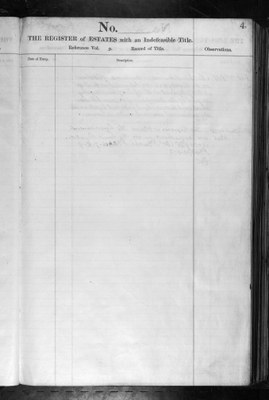 No.
4.
THE REGISTER of ESTATES with an Indefeasible Title.
Reference Vol. p. Record of Title
Observations.
Date of Entry.
Description.